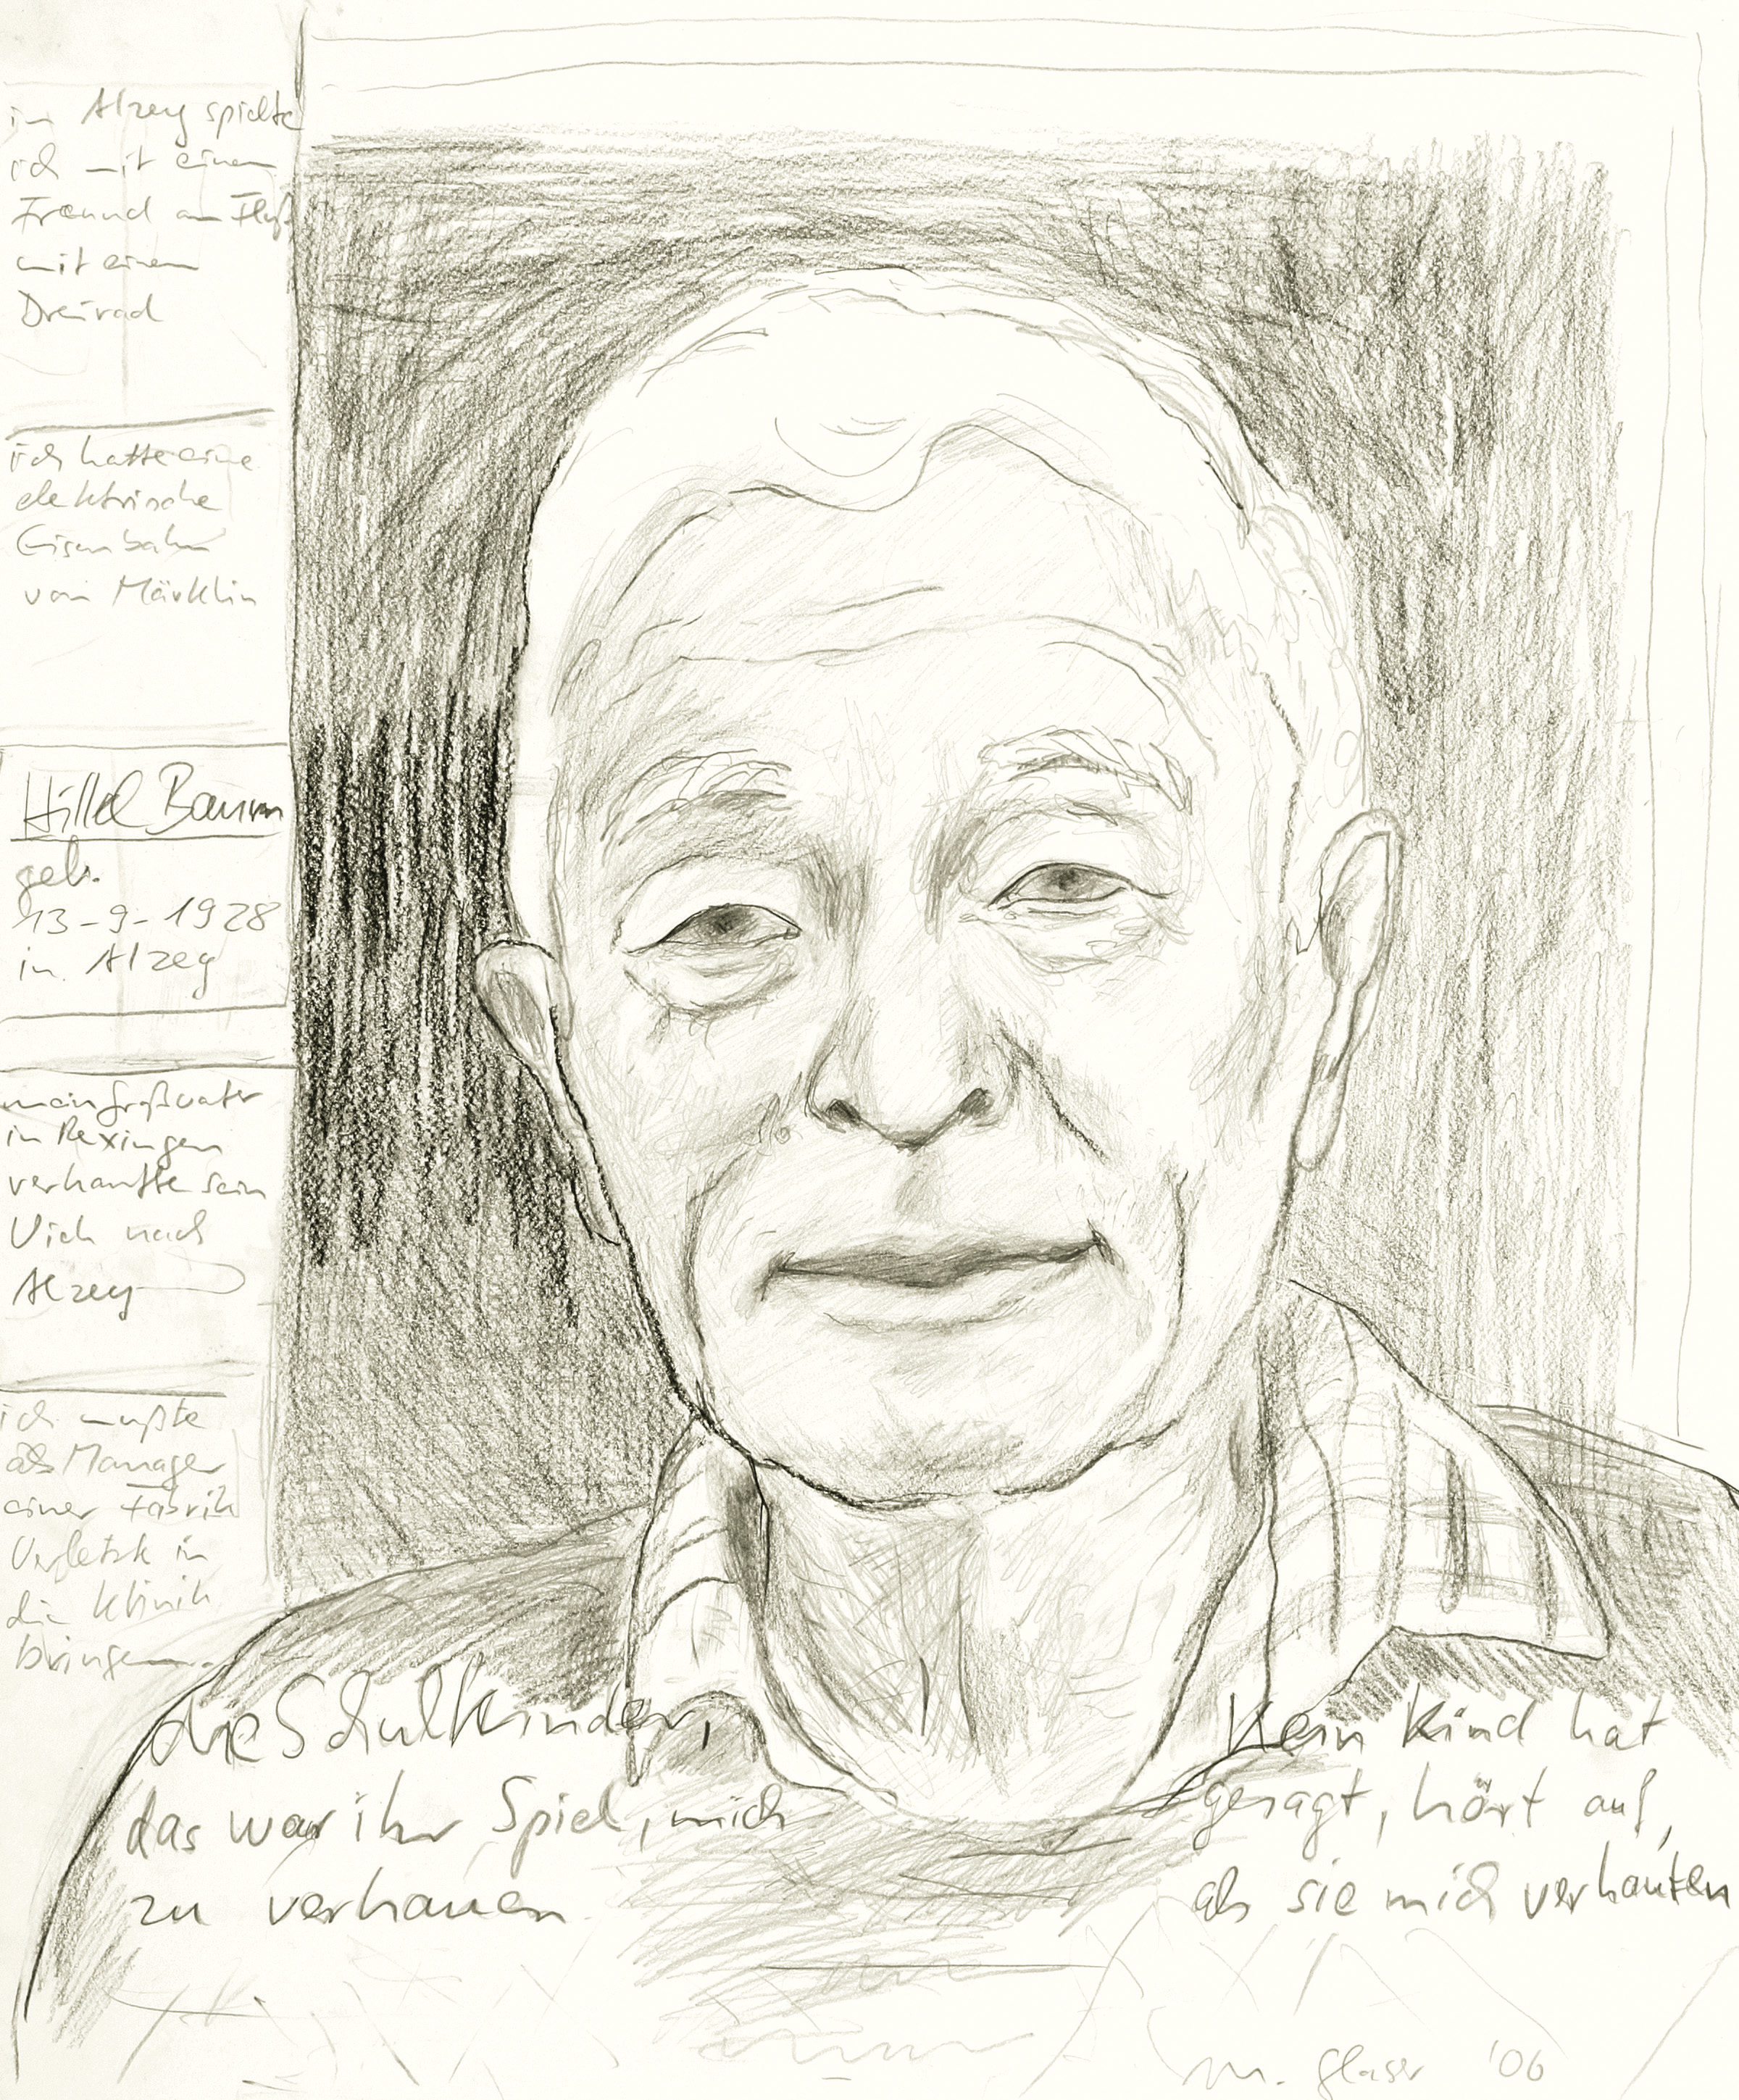 in Alzey spielte
ich mit einem
Freund am Fluß
mit einem
Dreirad
ich hatte eine
elektrische
Eisenbahn
von Märklin
Hillel Baum
geb.
13-9-1928
in Alzey
mein Großvater
in Rexingen
verkaufte sein
Vieh nach
Alzey
ich mußte
als Manager
einer Fabrik
Verletzte in
die Klinik
bringen
die Schulkinder,
das war ihr Spiel, mich
zu verhauen
Kein Kind hat
gesagt, hört auf,
als sie mich verhauten
M. Glaser '06